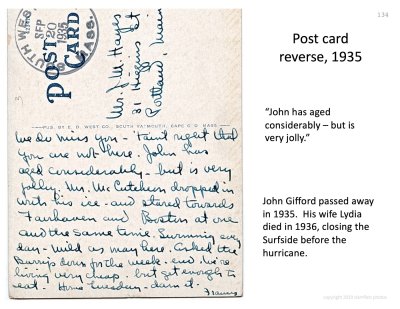 134
Post card
reverse, 1935
“John has aged
considerably – but is
very jolly.”
John Gifford passed away
in 1935. His wife Lydia
died in 1936, closing the
Surfside before the
hurricane.
UTH WES
SEP
20
1935
MASS.
POST
CARD
Mr. J. M. Hayes
31 Higgins St
Portland, Maine
PUB. BY E. D. WEST CO., SOUTH YARMOUTH, CAPE COD, MASS.
We do miss you - 'Taint right that
you are not here. John has
aged considerably - but is very
jolly. Mr. McCutcheon dropped in
with his ice - and stared towards
Fairhaven and Boston at one
and the same time. Swimming every
day - mild as may here. Asked the
down for the week-end. We're
living very cheap. but get enough to
eat. Home Tuesday - darn it.
Francis